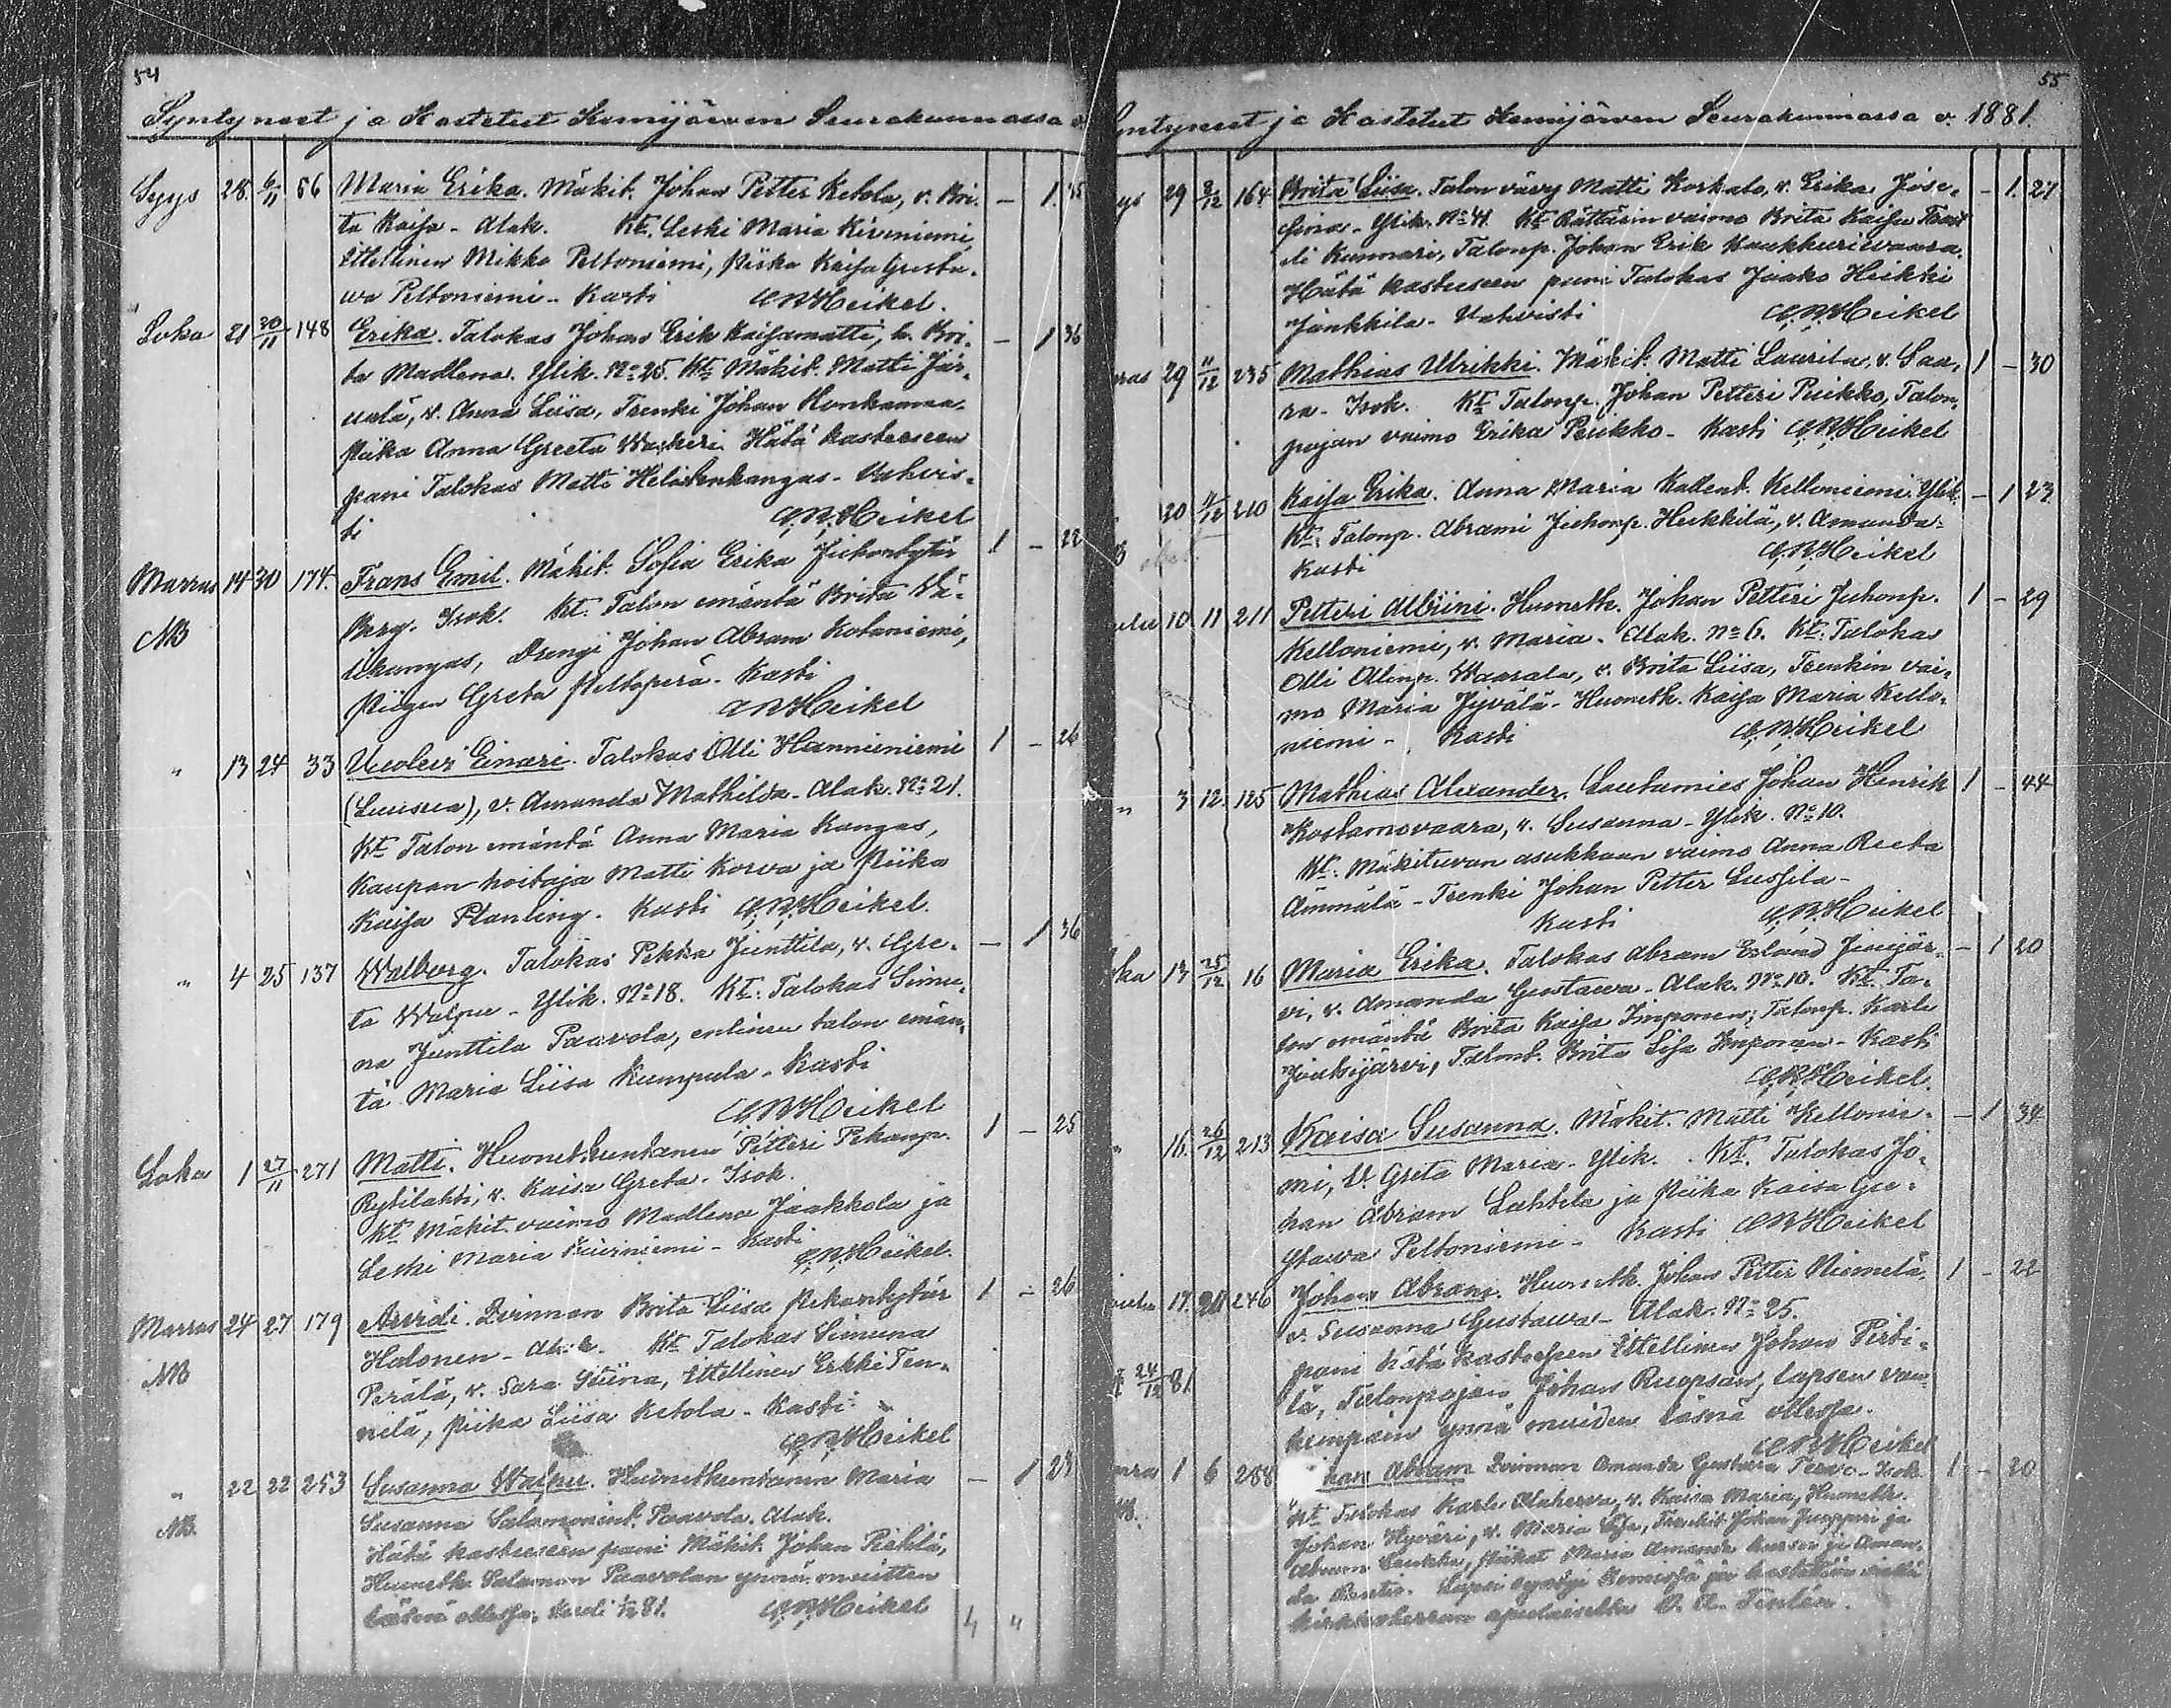 54
Syntyneet ja Kastetut Kemijärven Seurakunnassa v.
Syys 28. 6/11 56 Maria Erika. Mäkit. Johan Petter Ketola, v. Bri- — 1. 35
ta Kaisa - Alak. Kt. Leski Maria Kiviniemi,
Itsellinen Mikko Peltoniemi, Piika Kaisa Gusta-
va Peltoniemi - Kasti C.R.Heikel.
Loka 21 20/11 148 Erika. Talokas Johan Erik Kaisamatti, v. Bri- — 1 36
ta Madlena. Ylik. No 25. Kt. Mäkit. Matti Jär-
v. Anna Liisa, Trenki Johan Honkamaa.
Piika Anna Greeta Hätä kasteeseen
pani Talokas Matti Heladenkangas - Vahvis-
ti C.R.Heikel
Marras 14 30 174. Frans Emil. Mäkit. Sofia Erika Juhontytär 1 — 22
NB Berg. Isok. Kt. Talon emäntä Brita Wä-
likangas, Drengi Johan Abram Kotaniemi,
Piigen Greta Peltoperä - Kasti
C.R.Heikel
" 13 24 33 Einari. Talokas Olli Hannieniemi 1 — 26
(Luusua), v. Amanda Mathilda - Alak. No 21.
Kt. Talon emäntä Anna Maria Kangas,
Kaupan hoitaja Matti Korva ja Piika
Kaisa Planting. Kasti C.R.Heikel.
" 4 25 137 Walborg. Talokas Pekka Junttila, v. Gre- — 1 36
ta Walpu - Ylik. No 18. Kt. Talokas Simu-
na Junttila Paavola, entinen talon emän-
tä Maria Liisa Kumpula - Kasti
C.R.Heikel
Loka 1 27/11 271 Matti. Huonekuntanen Petteri Pekanp. 1 — 25
Rytilahti, v. Kaisa Greta. Isok.
Kt. Mäkit. vaimo Madlena Jaakkola ja
Leski Maria Kiviniemi - Kasti
C.R.Heikel.
Marras 24 27 179 Arvidi. Irtinnan Brita Liisa Pekantytär 1 — 26
NB Halonen - Alak. Kt. Talokas Simuna
Perälä, v. Sara Stiina, Itsellinen Erkki Ten-
nilä, Piika Liisa Ketola - Kasti
C.R.Heikel
" 22 22 253 Susanna Walpu. Huonekuntanen Maria — 1 23
NB. Susanna Salamonint. Paavola. Alak.
Hätä kasteeseen pani Mäkit. Johan Pirtilä,
Huonetk. Salomon Paavolan ynnä muitten
läsnä ollessa. 81. C.R.Heikel
4 4
55
Syntyneet ja Kastetut Kemijärven Seurakunnassa v. 1881.
29 8/12 164 Brita Liisa. Talon vävy Matti Korkalo, v. Erika Jose- — 1. 27
fina - Ylik. No 41. Kt. Rättärin vaimo Brita Kaisa
Kunnari, Talonp. Johan Erik Kaukkurivaara.
Hätä kasteeseen pani Talokas Jaako Heikki
Jänkkilä - Vahvisti C.R.Heikel
29 11/12 235 Mathias Ulrikki. Mäkit. Matti Laurila, v. Saa- 1 — 30
ra - Isok. Kt. Talonp. Johan Petteri Puikko, Talon-
pojan vaimo Erika Puikko - Kasti C.R.Heikel
20 11/12 210 Kaisa Erika. Anna Maria Kallent. Kelloniemi. Ylik. — 1 23
Kt. Talonp. Abrami Juhonp. Heikkilä, v. Amanda.
Kasti C.R.Heikel
10. 11 211 Petteri Albiini. Huonetk. Johan Petteri Juhonp. 1 — 29
Kelloniemi, v. Maria. Alak. No 6. Kt. Talokas
Olli Ollinp. Waarala, v. Brita Liisa, Trenkin vai-
mo Maria Jyvälä - Huonetk. Kaisa Maria Kello-
niemi - Kasti C.R.Heikel
" 3 12. 125 Mathias Alexander. Lautamies Johan Henrik 1 — 44
Kostamovaara, v. Susanna - Ylik. No 10.
Kt. Mäkituvan asukkaan vaimo Anna Reeta
Ämmälä - Trenki Johan Petter Lussila -
Kasti C.R.Heikel
13 25/12 16 Maria Erika. Talokas Abram Erland Jinijär- — 1 20
vi, v. Amanda Gustava - Alak. No 10. Kt. Ta-
lon emäntä Brita Kaisa Imponen, Talonp. Karle
Joutsijärvi, Talont. Brita Lisa Imponen - Kasti
C.R.Heikel.
16. 26/12 213 Kaisa Susanna. Mäkit. Matti Kellonie- — 1 34
mi, v. Greta Maria - Ylik. Kt. Talokas Jo-
han Abram Lahtela ja Piika Kaisa Gu-
stawa Peltoniemi - Kasti C.R.Heikel
17. 24 246 Johan Abram. Huonetk. Johan Petter Niemelä, 1 — 22
v. Susanna Gustawa - Alak. No 25.
24/12 81. pani hätä kasteesen Itsellinen Johan Pirti-
lä, Talonpojan Johan Ruopsan, lapsen van-
hempain ynnä muiden läsnä ollessa.
C.R.Heikel
1 6 288 Abram Irtinnan Amanda Gustava - Isok. 1 — 20
Kt. Talokas Karle Alaherva, v. Kaisa Maria, Huonetk.
Johan Hyväri, v. Maria Lisa, Trenkit Johan ja
Abram Piikat Maria Amanda ja Aman-
da Lapsi syntyi ja kastettiin
kirkkoherran apulaiselta